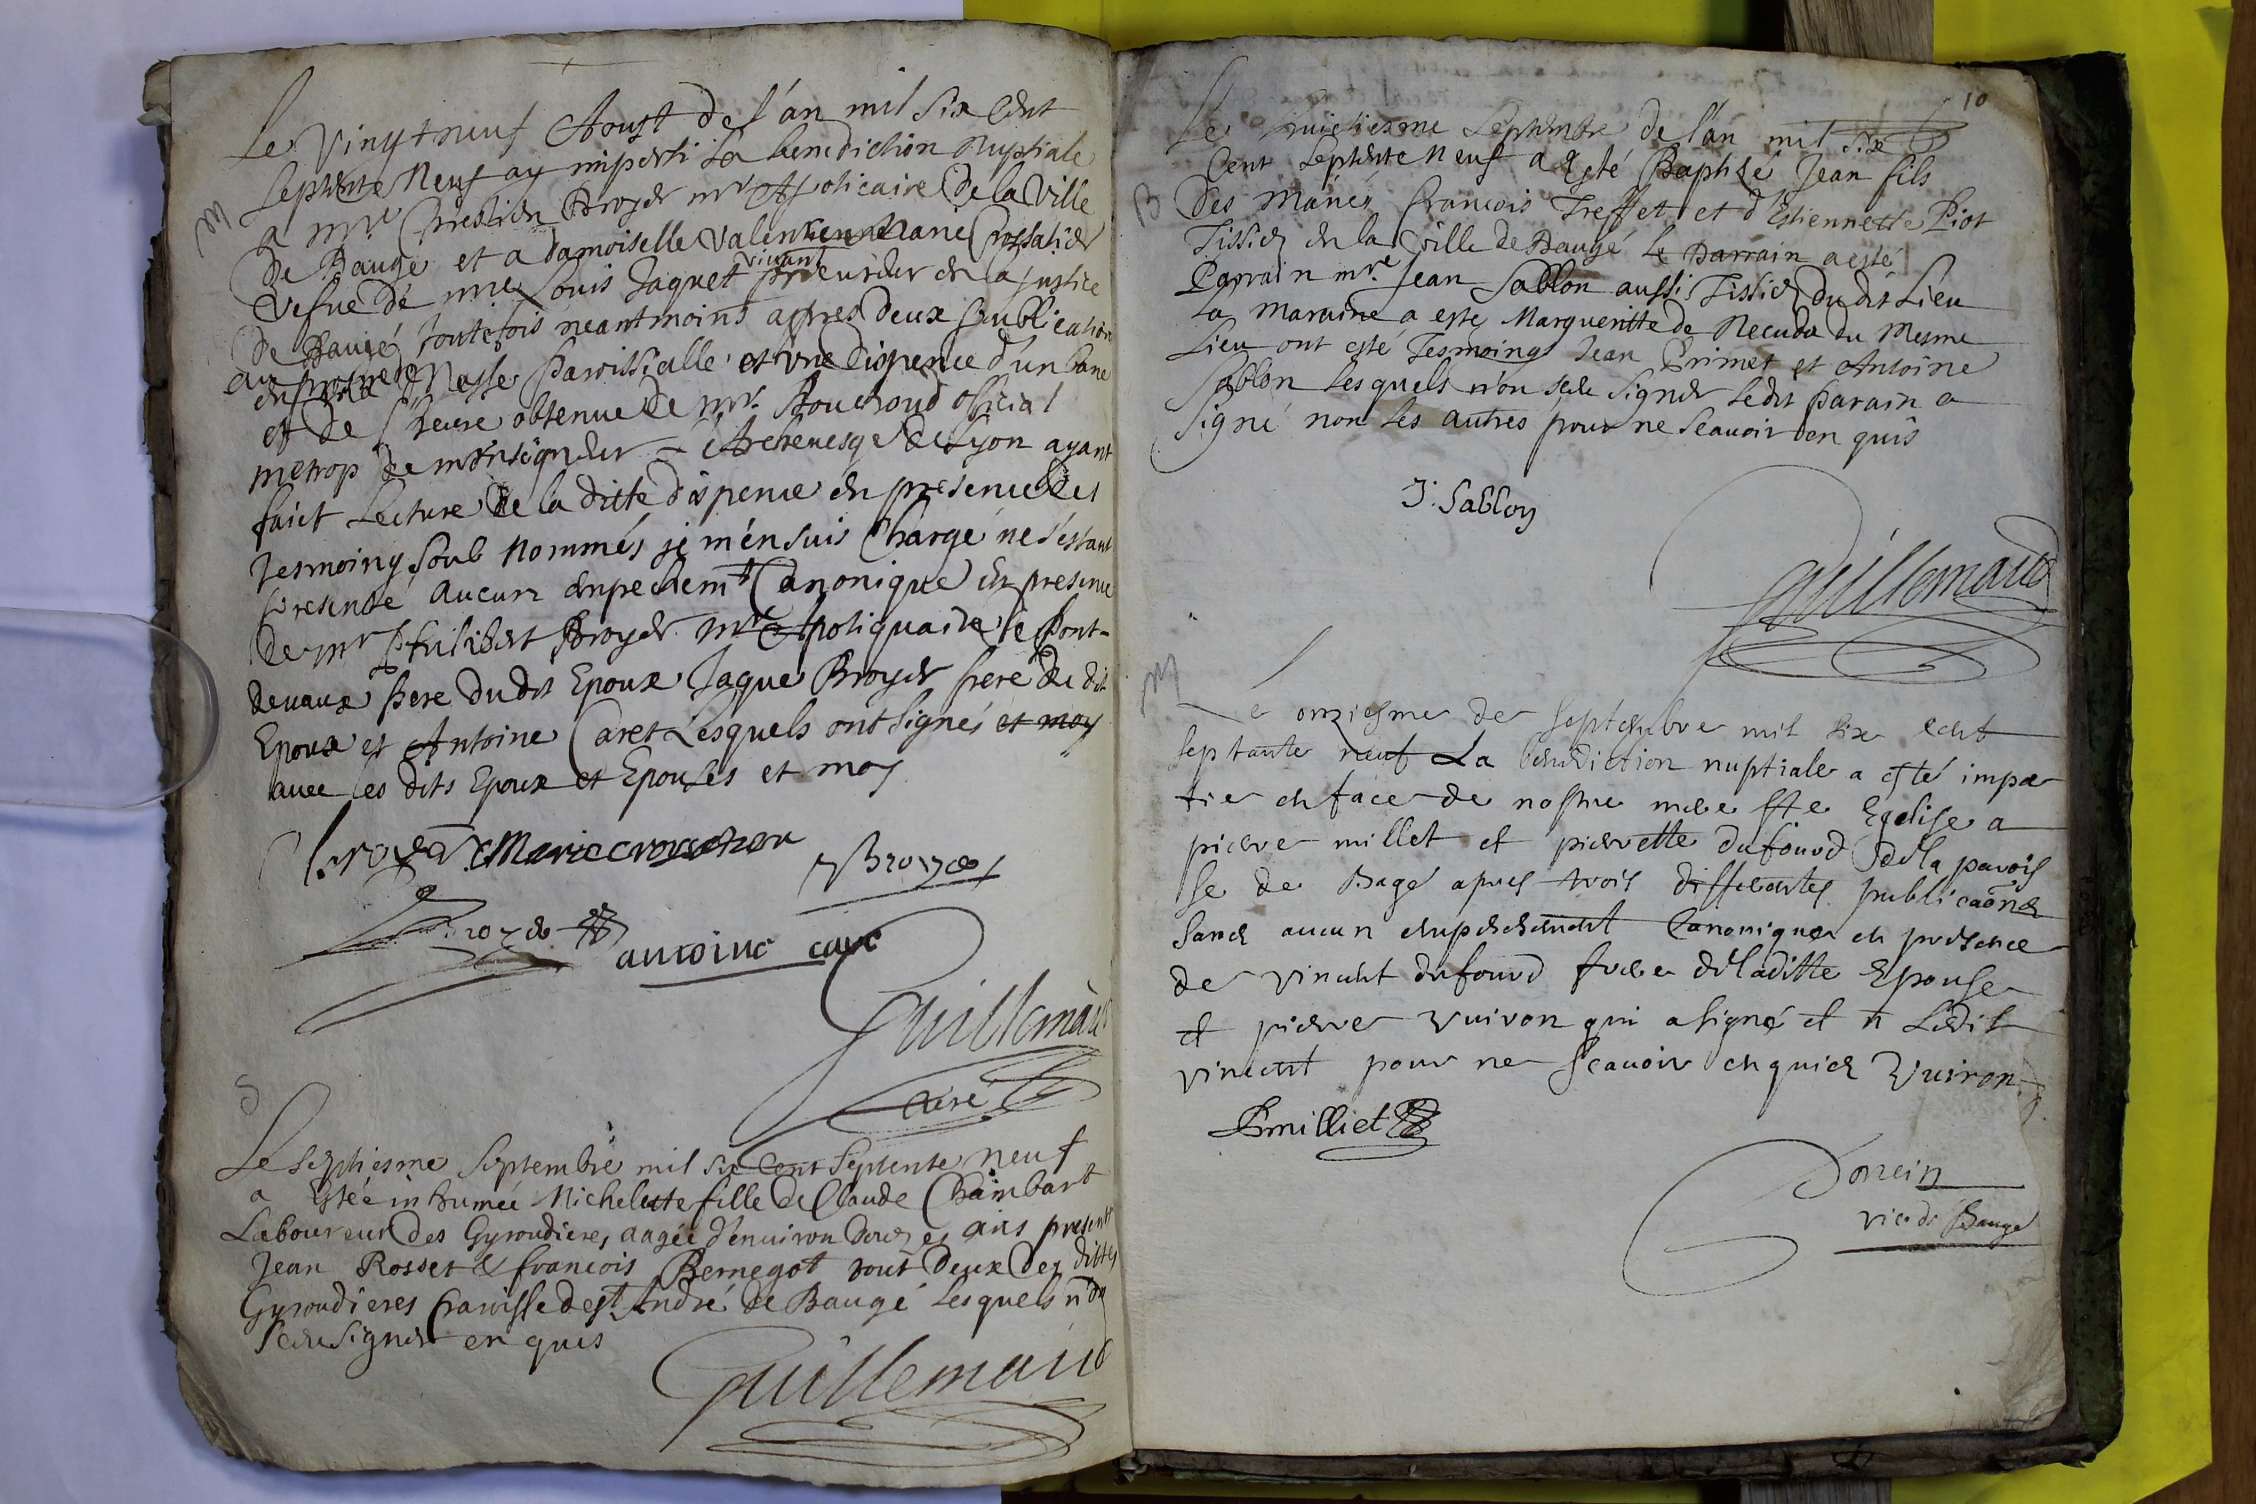 M
Le vingt neuf Aoust de l'an mil six cent
septente Neuf ay imparti la benediction Nuptiale
a mre Broyer mre Apoticaire de la Ville
de Baugé et a damoiselle Valentienne Marie Crossatier
vefue de mre Louis Jaquet vivant procureur en la justice
de Baugé toutefois neantmoins apres deux publication
au prosne de Messe paroissialle et une dispence d'un banc
et de l'heure obtenue de mr. official
metrop de monseigneur Archevesqe de Lyon ayant
faict Lecture de la ditte dispence en presence des
tesmoing soub Nommés je m'en suis Chargé ne s'estant
presenté aucun enpechemt Canonique En presence
de mr Philibert Broyer mre Apotiquaire de Pont-
devaux Pere dudit Epoux Jaque Broyer frere du dit
Epoux et Antoine Caret Lesquels ont signés et moy
avec les dits Epoux et Epouses et moy
Broyer Marie
Broyer
Broyer antoine care
Guillemaud
curé
S
Le septiesme septembre mil six Cent septente neuf
a Estée inhumée Michelette fille de Claude Chambart
Laboureur des Gyroudieres aagée d'environ ans present
Jean Rosset & francois Bernegot tout deux des dittes
Gyroudieres paroisse de st André de Baugé Lesquels n'on
sceu signer en quis
Guillemaud
10
B
Le huictiesme septembre de l'an mil six
Cent septente neuf a Esté Baptisé Jean fils
des Mariés francois Treffet et d'Estiennette Piot
Tissier en la ville de Baugé Le Parrain a esté
Parrain mre Jean Sablon aussi Tissier du dit Lieu
La maraine a esté Margueritte de Necuda du Mesme
Lieu ont esté Tesmoings Jean Primet et Antoine
Sablon lesquels n'on sceu signer ledit parain a
signé non les autres pour ne scavoir en quis
J: Sablon
Guillemaud
M
Le onziesme de septembre mil six cent
septante neuf La benediction nuptiale a esté impar
tie en face de nostre mere ste Eglise a
pierre millet et pierrette dufourd de la parois
se de Bagé apres trois differentes publicaôns
sans aucun enpeschement Canonique en presence
de vincent dufourd frere de laditte Epouse
et pierre vuiron qui a signé et n Ledit
vincent pour ne scavoir enquis Vuiron
P milliet
Doncin
vic de Baugé